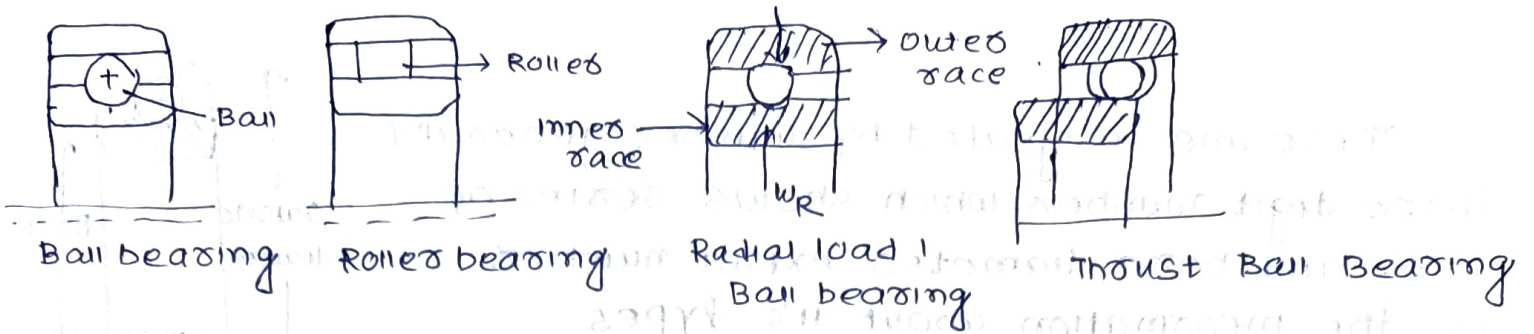 Ball
Roller
outer
race
Inner
race
WR
Ball bearing
Roller bearing
Radial load
Ball bearing
Thrust Ball Bearing